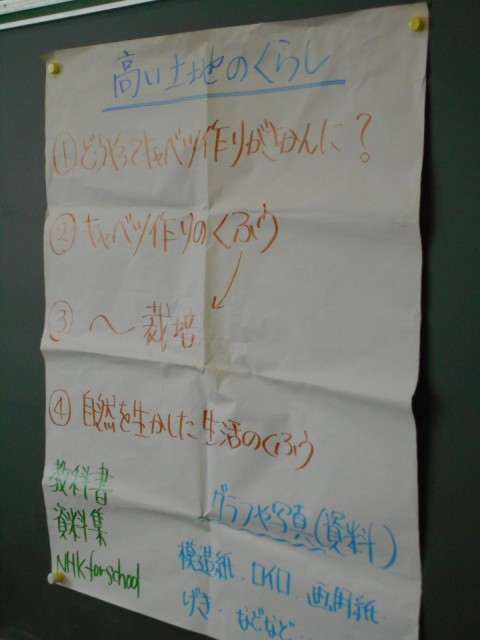 高い土地のくらし
① どうやってキャベツ作りがさかんに？
② キャベツ作りのくふう
③ 〜栽培
④ 自然を生かした生活のくふう
教科書
資料集
NHK for school
グラフや写真(資料)
模造紙、ロイロ、画用紙、
げき、などなど…